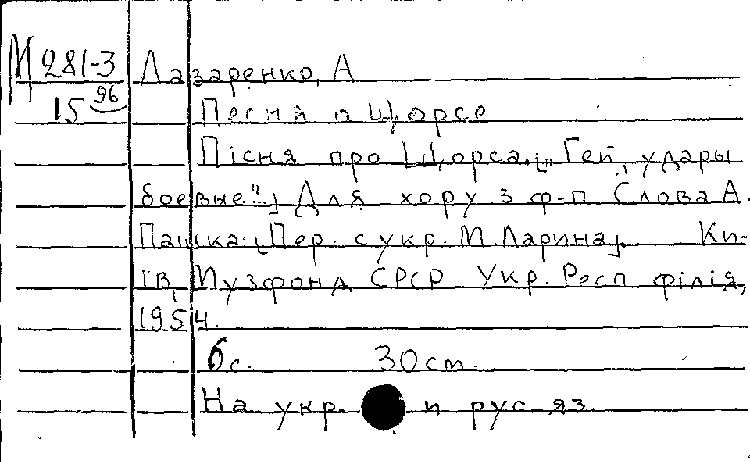 М 281-3 Лазаренко, А
15 96
Песня о Щорсе
Пісня про Щорса. [„Гей, удары
боевые"] Для хору з ф-п. Слова А.
Пашка. [Пер. с укр. М. Ларина]. Ки-
їв, Музфонд СРСР Укр. Респ філія,
1954.
6с. 30 cm.
На укр. и рус яз.